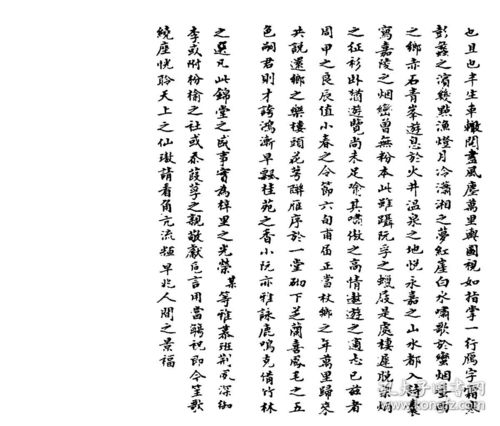 也且也半生車轍閱盡風塵萬里輿圖視如指掌一行雁字霜寒
彭蠡之濱幾點漁燈月冷瀟湘之夢紅崖白水嘯歌於蠻烟蜑
之鄉赤石青峯遊息於火井溫泉之地悅永嘉之山水都入詩囊
寫嘉陵之烟巒曾無粉本此雖躡阮孚之蠟屐是處棲遲脫
之征衫卧猶遊覽尚未足喻其嘯傲之高情遨遊之適志已茲者
周甲之良辰值小春之令節六旬甫届正當杖鄉之年萬里歸來
共說還鄉之樂樓頭花萼聯雁序於一堂砌下芝蘭喜鳳毛之五
色嗣君則才誇鴻漸早飄桂苑之香小阮亦雅詠鹿鳴克備竹林
之選凡此錦堂之盛事實為梓里之光榮某等雅慕班荆夙深御
李或附枌榆之社或忝葭莩之親敬獻卮言用當躋祝即今笙歌
繞座恍聆天上之仙璈請看角亢流輝早兆人間之景福